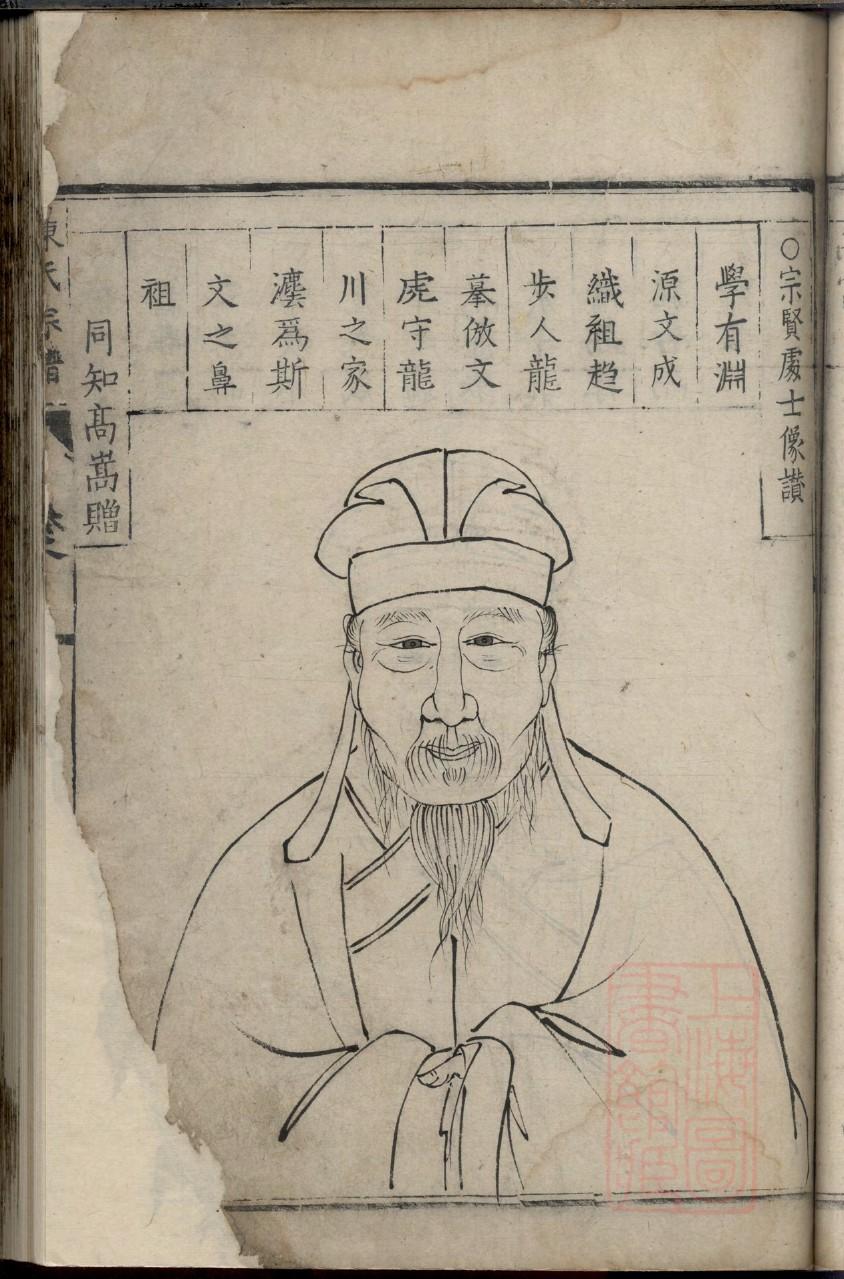 ○宗賢處士像讃
學有淵
源文成
織祖趋
步人龍
摹倣文
虎守龍
川之家
瀍爲斯
文之鼻
祖
同知髙嵩贈
陳氏宗譜
上海圖
書館藏